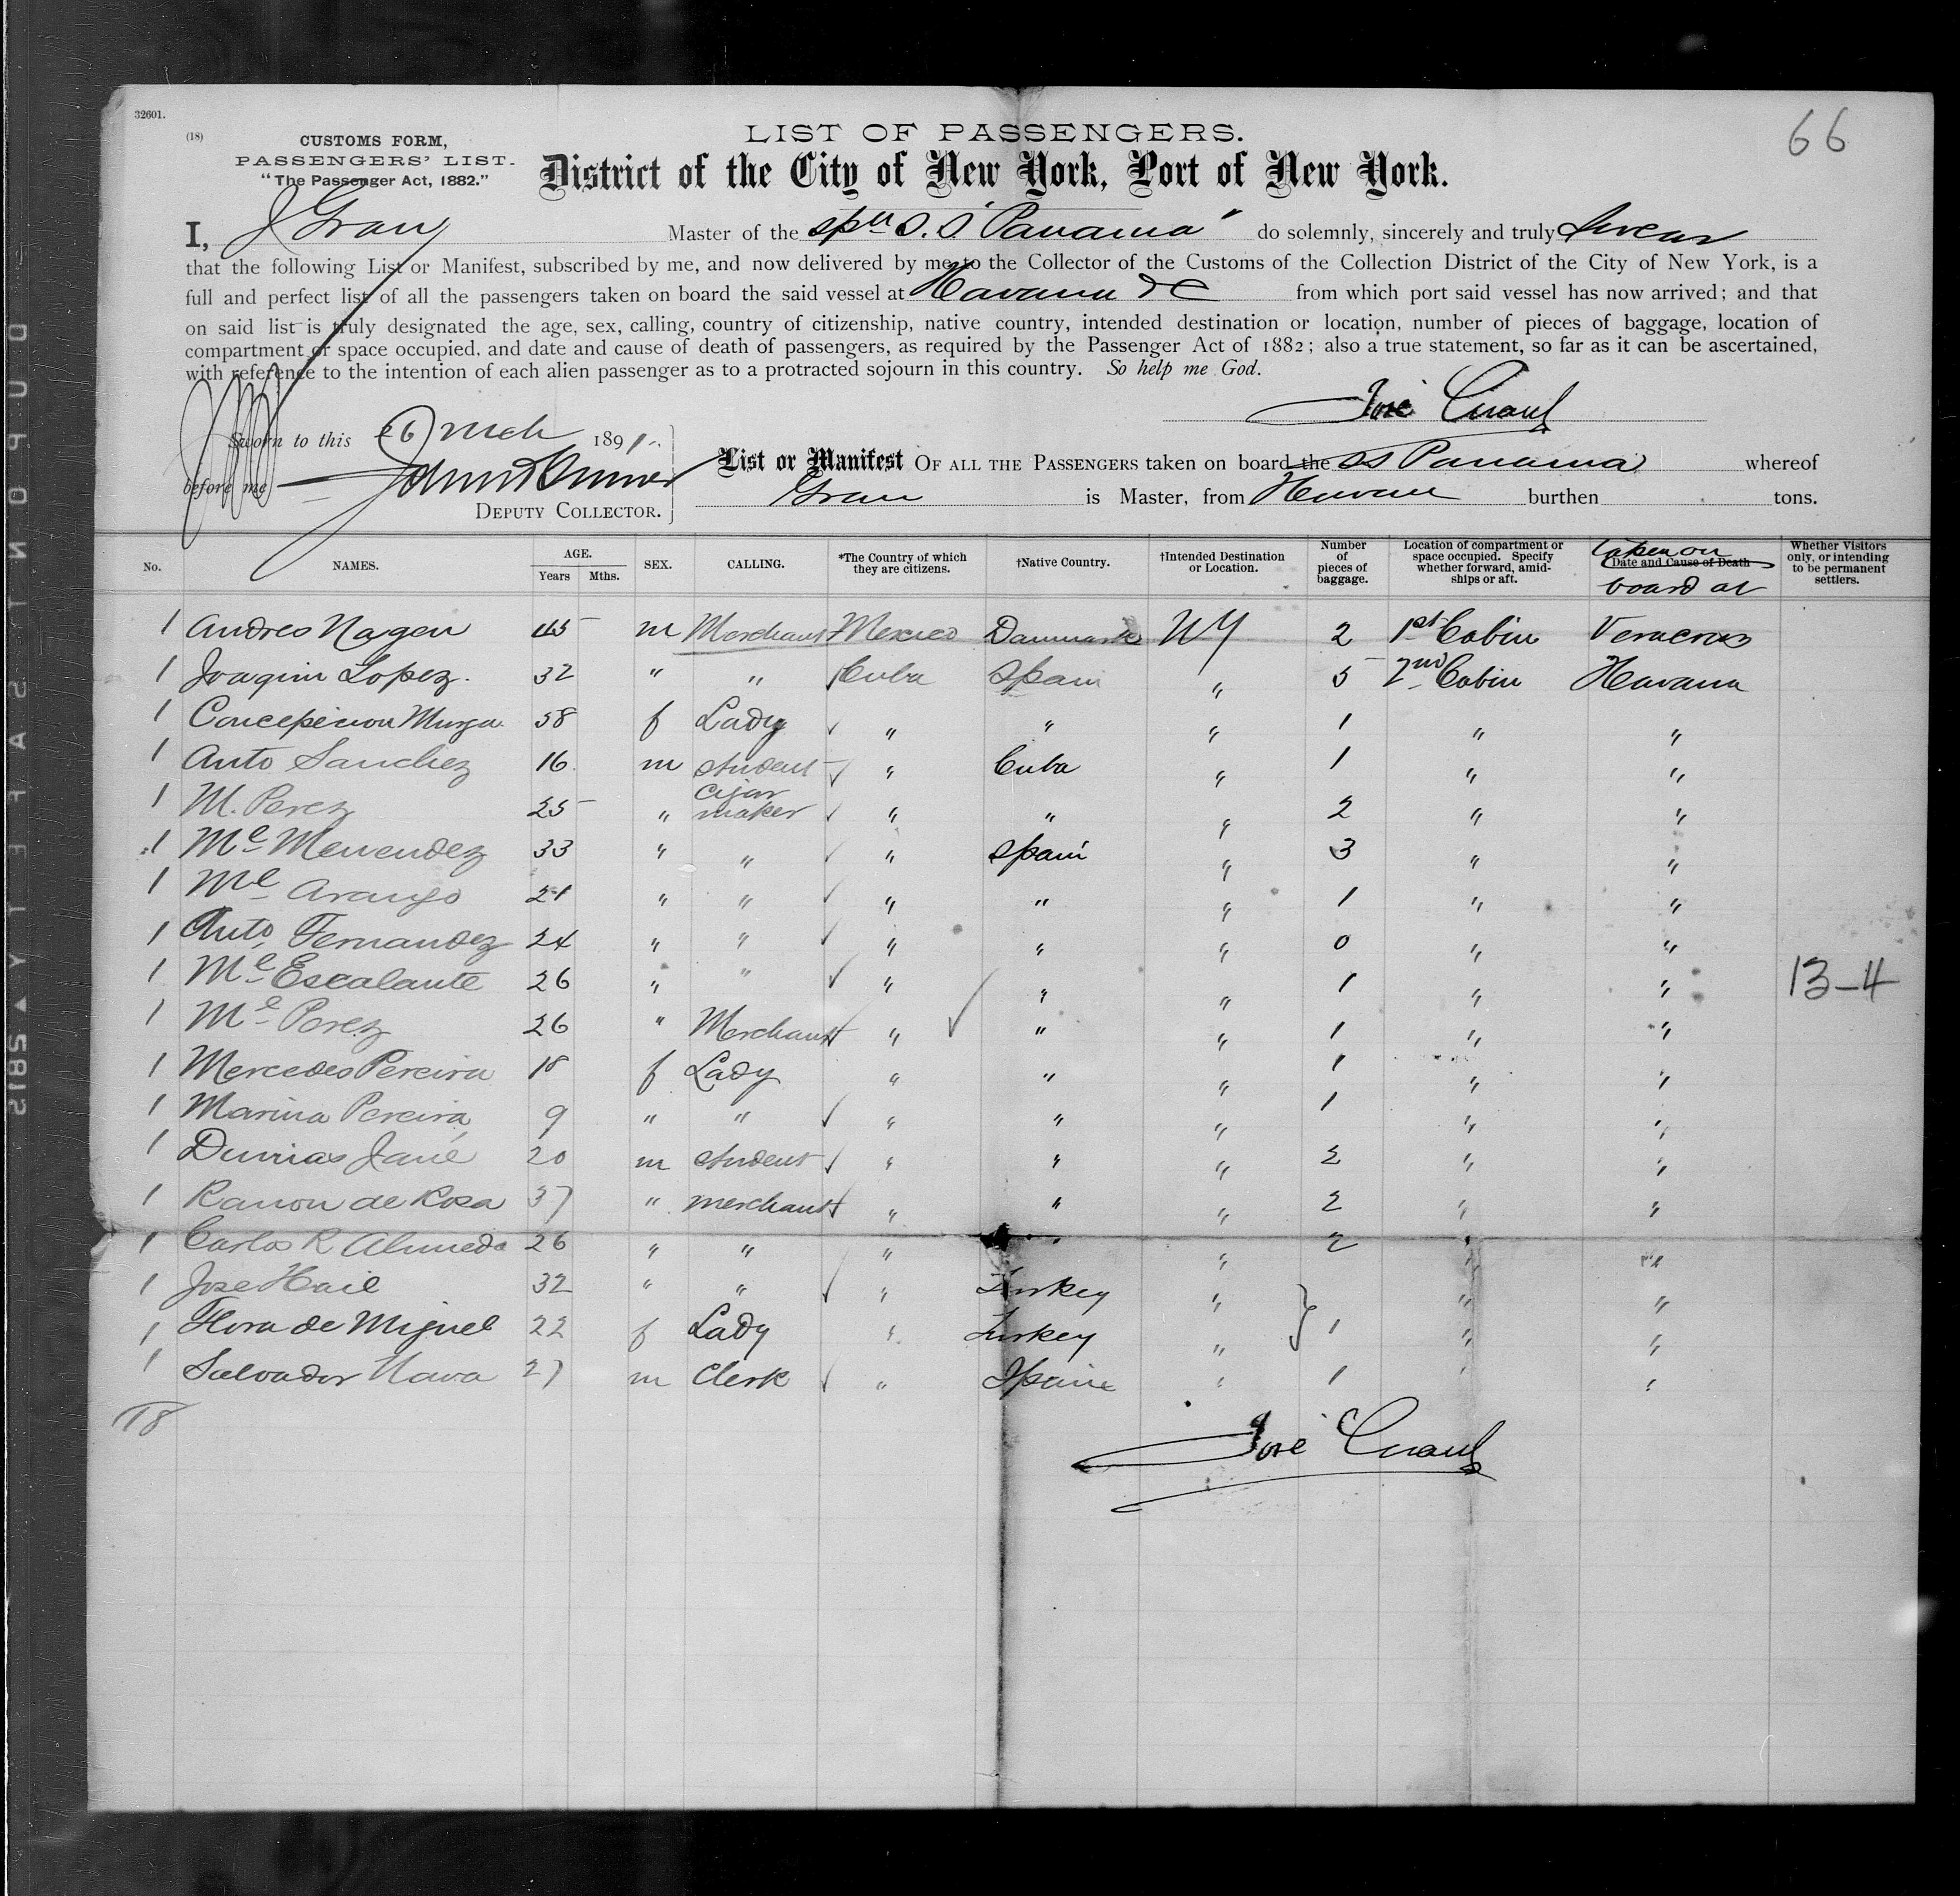 32601.
66
(18)
CUSTOMS FORM,
PASSENGERS' LIST.
"The Passenger Act, 1882."
LIST OF PASSENGERS.
District of the City of New York, Port of New York.
I, J Grau Master of the spn S.S. "Panama" do solemnly, sincerely and truly swear
that the following List or Manifest, subscribed by me, and now delivered by me to the Collector of the Customs of the Collection District of the City of New York, is a
full and perfect list of all the passengers taken on board the said vessel at Havana &c from which port said vessel has now arrived; and that
on said list is truly designated the age, sex, calling, country of citizenship, native country, intended destination or location, number of pieces of baggage, location of
compartment or space occupied, and date and cause of death of passengers, as required by the Passenger Act of 1882; also a true statement, so far as it can be ascertained,
with reference to the intention of each alien passenger as to a protracted sojourn in this country. So help me God.
José
Sworn to this 26 Mch 1891
before me
DEPUTY COLLECTOR.
List or Manifest OF ALL THE PASSENGERS taken on board the SS Panama whereof
Grau is Master, from Havana burthen tons.
No. NAMES. AGE. Years Mths. SEX. CALLING. *The Country of which they are citizens. †Native Country. †Intended Destination or Location. Number of pieces of baggage. Location of compartment or space occupied. Specify whether forward, amidships or aft. Date and Cause of Death taken on board at Whether Visitors only, or intending to be permanent settlers.
1 Andres Nagen 45 m Merchant Mexico Danmark NY 2 1st Cabin Veracruz
1 Joaquin Lopez. 32 " " Cuba Spain " 5 2nd Cabin Havana
1 Concepcion Murga 58 f Lady " " " 1 " "
1 Anto Sanchez 16 m student " Cuba " 1 " "
1 M. Perez 25 " cigar maker " " " 2 " "
1 Ml Menendez 33 " " " Spain " 3 " "
1 Ml Arango 21 " " " " " 1 " "
1 Anto Fernandez 24 " " " " " 0 " "
1 Ml Escalante 26 " " " " " 1 " " 13-4
1 Ml Perez 26 " Merchant " " " 1 " "
1 Mercedes Pereira 18 f Lady " " " 1 " "
1 Marina Pereira 9 " " " " " 1 " "
1 Jané 20 m student " " " 2 " "
1 Ramon de Rosa 37 " merchant " " " 2 " "
1 Carlos R Almeda 26 " " " " " 2 " "
1 Jose Hail 32 " " " Turkey " " "
1 Flora de Miguel 22 f Lady " Turkey " } 1 " "
1 Salvador Nava 27 m Clerk " Spain " 1 " "
18
José